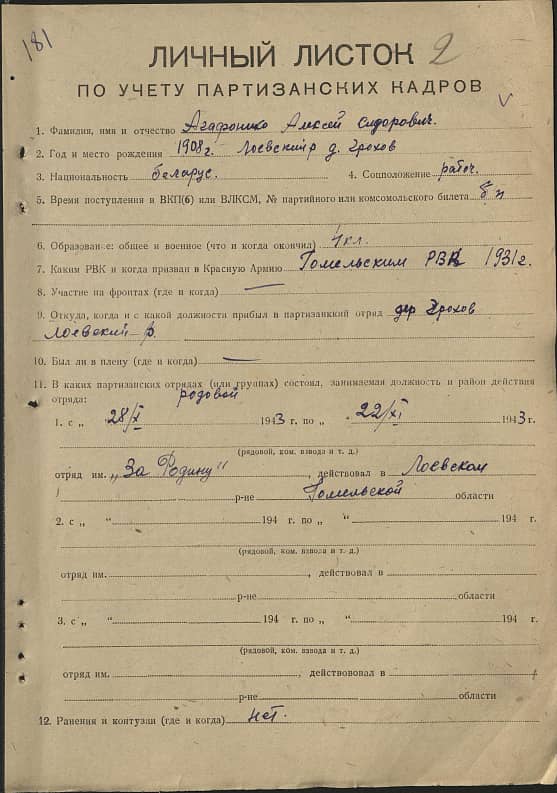 181
ЛИЧНЫЙ ЛИСТОК 2
ПО УЧЕТУ ПАРТИЗАНСКИХ КАДРОВ
1. Фамилия, имя и отчество Агафоненко Алексей Сидорович.
2. Год и место рождения 1908 г. Лоевский р д. Грохов
3. Национальность беларус. 4. Соцположение рабоч.
5. Время поступления и ВКП(б) или ВЛКСМ, № партийного или комсомольского билета б/п
6. Образование: общее и военное (что и когда окончил) 4 кл.
7. Каким РВК и когда призван в Красную Армию Гомельским РВК 1931 г.
8. Участие на фронтах (где и когда) —
9. Откуда, когда и с какой должности прибыл в партизанский отряд дер Грохов
Лоевский р.
10. Был ли в плену (где и когда) —
11. В каких партизанских отрядах (или группах) состоял, занимаемая должность и район действия
отряда: родовой
1. с „ 28/X “ 1943 г. по „ 22/XI “ 1943 г.
(рядовой, ком. взвода и т. д.)
отряд им. „За Родину“, действовал в Лоевском
р-не Гомельской области
2. с „ “ 194 г. по „ “ 194 г.
(рядовой, ком. взвода и т. д.)
отряд им. , действовал в
р-не области
3. с „ “ 194 г. по „ “ 194 г.
(рядовой, ком. взвода и т. д.)
отряд им. , действововал в
р-не области
12. Ранения и контузии (где и когда) нет.